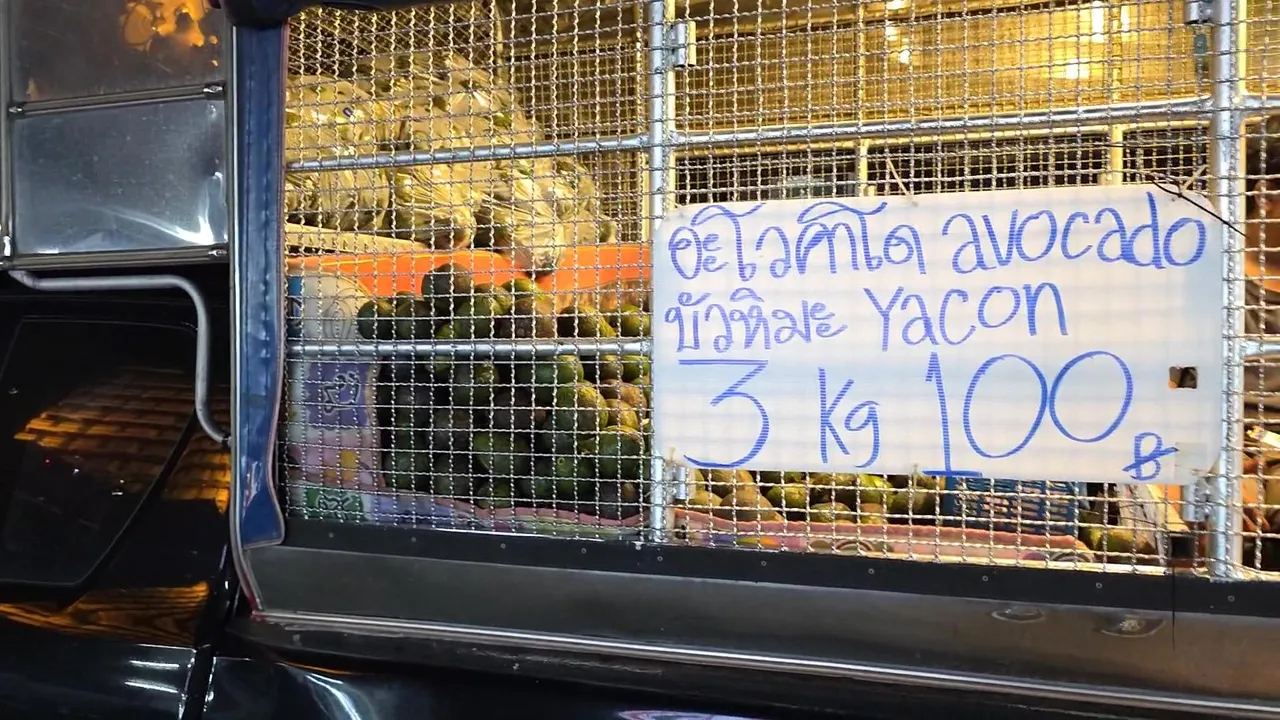 อะโวคาโด avocado
บัวหิมะ Yacon
3 Kg 100 ฿